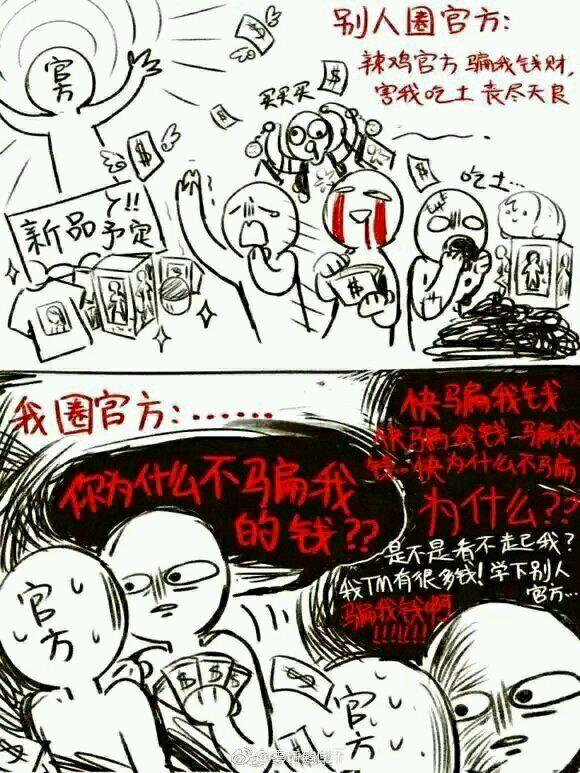 别人圈官方:
辣鸡官方 骗我钱财,
害我吃土 丧尽天良
官方
买买买
$
$
$
$
吃土…
丫!!
新品予定
我圈官方:……
你为什么不骗我
的钱??
快骗我钱
快骗我钱 骗我
钱 快为什么不骗
为什么??
是不是看不起我?
我TM有很多钱!学下别人
官方…
骗我钱啊
!!!!!!
官方
$
$
$
$
$
官方